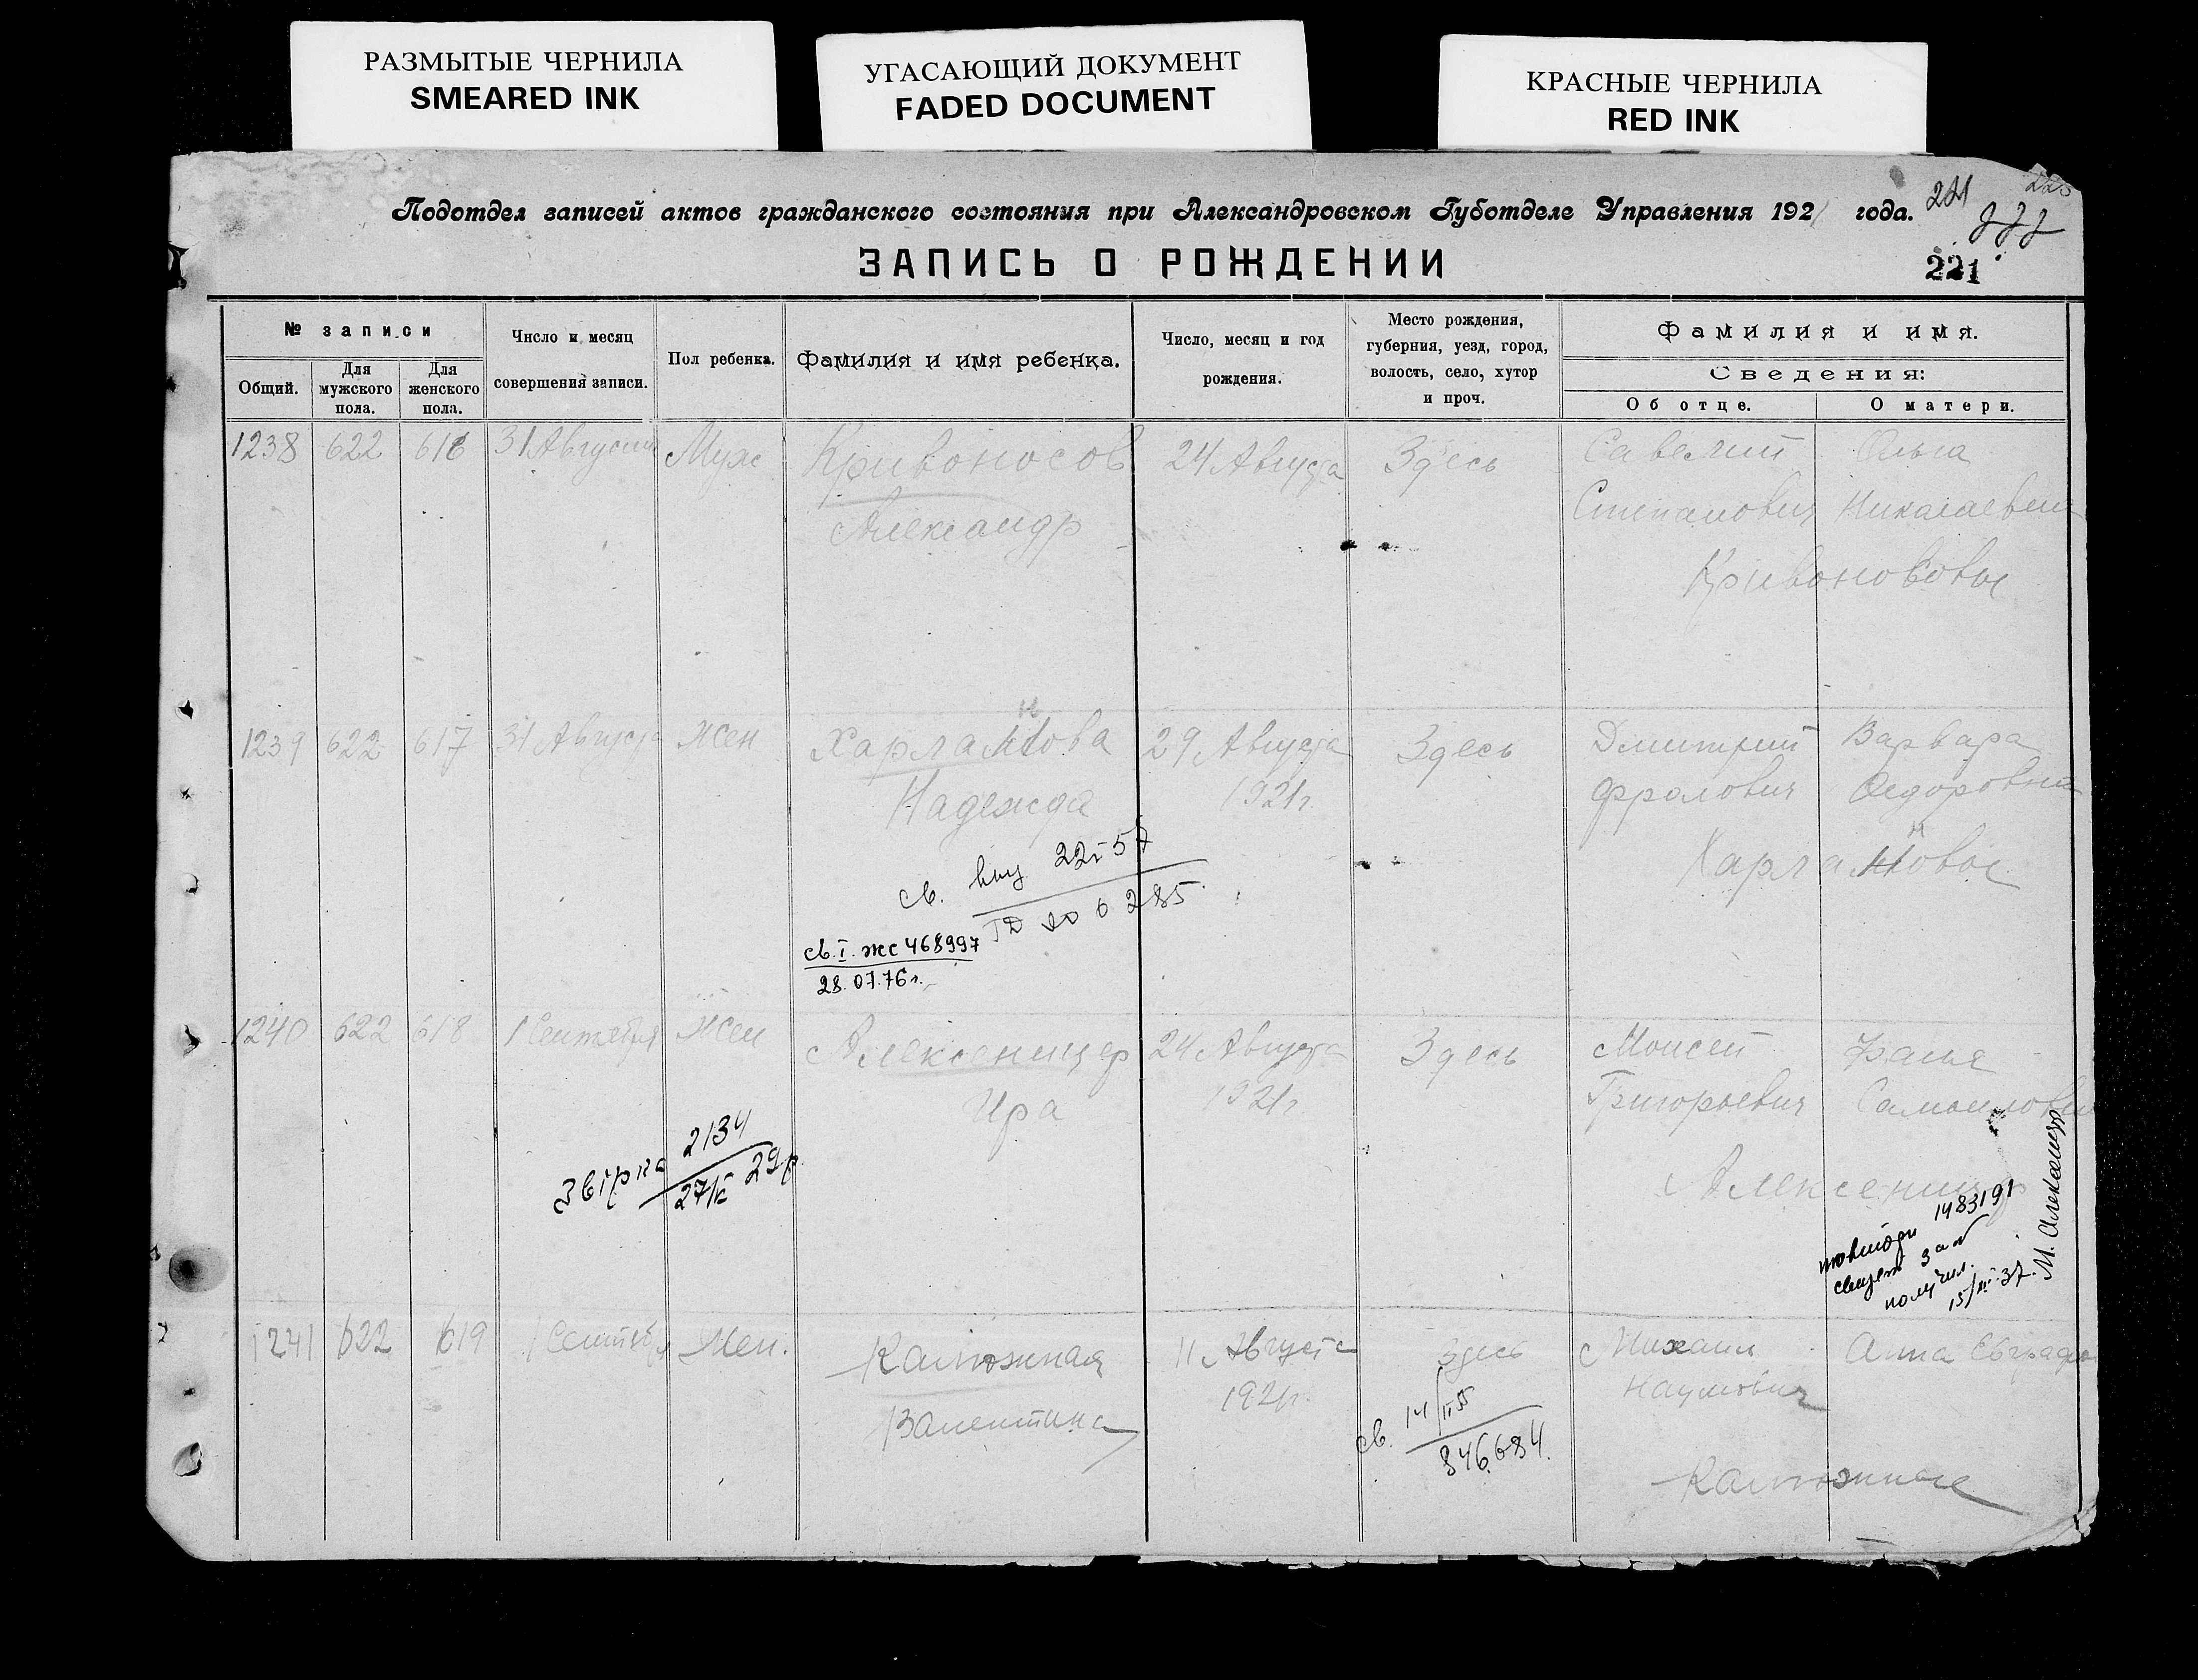 РАЗМЫТЫЕ ЧЕРНИЛА
SMEARED INK
УГАСАЮЩИЙ ДОКУМЕНТ
FADED DOCUMENT
КРАСНЫЕ ЧЕРНИЛА
RED INK
Подотдел записей актов гражданского состояния при Александровском Губотделе Управления 1921 года.
221
ЗАПИСЬ О РОЖДЕНИИ
221
№ записи
Общий.
Для мужского пола.
Для женского пола.
Число и месяц
совершения записи.
Пол ребенка.
Фамилия и имя ребенка.
Число, месяц и год
рождения.
Место рождения,
губерния, уезд, город,
волость, село, хутор
и проч.
Фамилия и имя.
Сведения:
Об отце.
О матери.
1238 622 616 31 Августа Муж Кривоносов 24 Августа Здесь Савелий Ольга
Александр Степанович Николаевна
1239 622 617 31 Августа Жен Харланова 29 Августа Здесь Дмитрий Варвара
Надежда 1921г. Фролович Федоровна
Харлановы
св. 22 57
285
св. I. жс 468997
28.07.76г.
1240 622 618 1 Сентября Жен Алексеницер 24 Августа Здесь Моисей Фаня
Ира 1921г Григорьевич Самойловна
Алексеницер
Звірка 2134
29р
1483191
получил.
15/III-37.
М. Алексеницер
1241 622 619 1 Сентября Жен. Калюжная 11 Августа Здесь Михаил Анна
Валентина 1921г. Наумович
Калюжные
св. 14/II 55
846684.